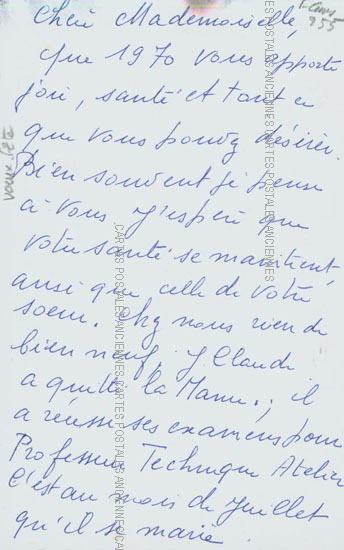 Chère Mademoiselle,
que 1970 vous apporte
joie, santé et tout ce
que vous pouvez désirer.
Bien souvent je pense
à vous j'espère que
votre santé se maintient,
ainsi que celle de votre
soeur. Chez nous rien de
bien neuf, J. Claude
a quitté la Manu.; il
a réussi ses examens pour
Professeur Technique Atelier
C'est au mois de Juillet
qu'il se marie.
955
CARTES POSTALES ANCIENNES CARTES POSTALES ANCIENNES
CARTES POSTALES ANCIENNES CARTES POSTALES ANCIENNES